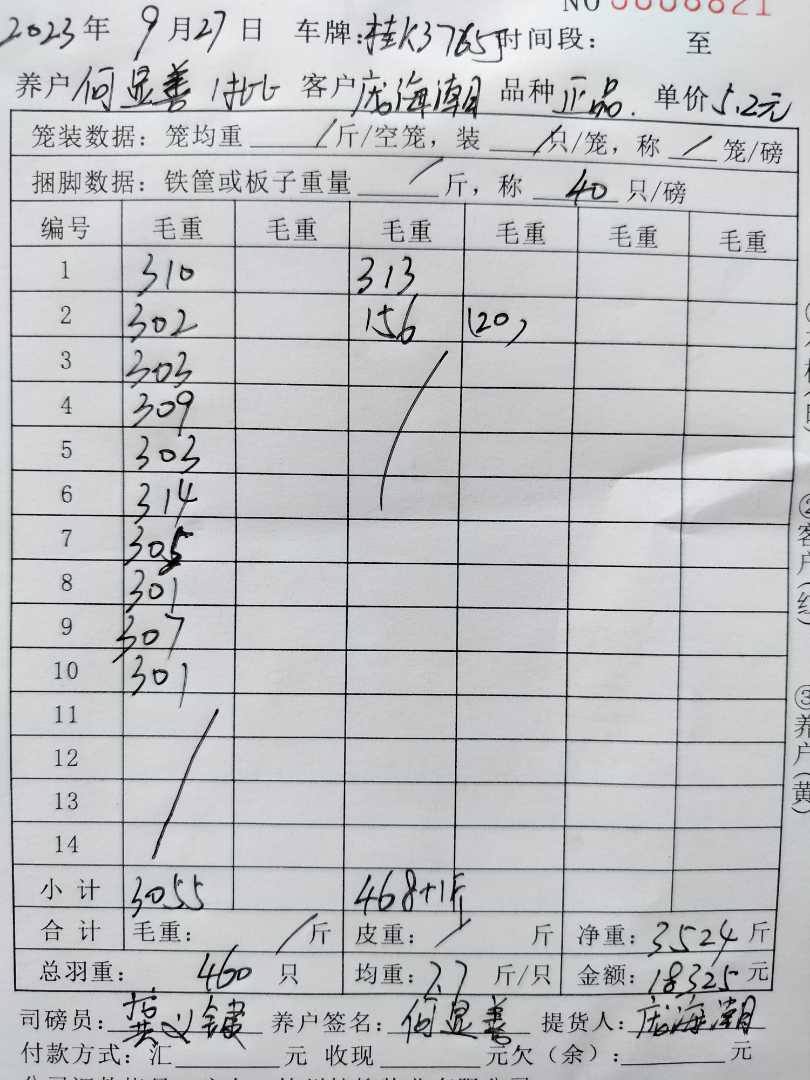 NO 0008821
2023年 9月27日 车牌:桂K3765J 时间段: 至
养户何显善 1批 客户庞海潮 品种正品. 单价5.2元
笼装数据: 笼均重 / 斤/空笼, 装 / 只/笼, 称 / 笼/磅
捆脚数据: 铁筐或板子重量 / 斤, 称 40 只/磅
编号 毛重 毛重 毛重 毛重 毛重 毛重
1 310 313
2 302 156 (20)
3 303
4 309
5 303
6 314
7 305
8 301
9 307
10 301
11
12
13
14
小计 3055 468+1斤
合计 毛重: / 斤 皮重: / 斤 净重: 3524 斤
总羽重: 460 只 均重: 7.7 斤/只 金额: 18325 元
司磅员: 义 养户签名: 何显善 提货人: 庞海潮
付款方式: 汇 元 收现 元欠(余): 元
②客户(红)
③养户(黄)